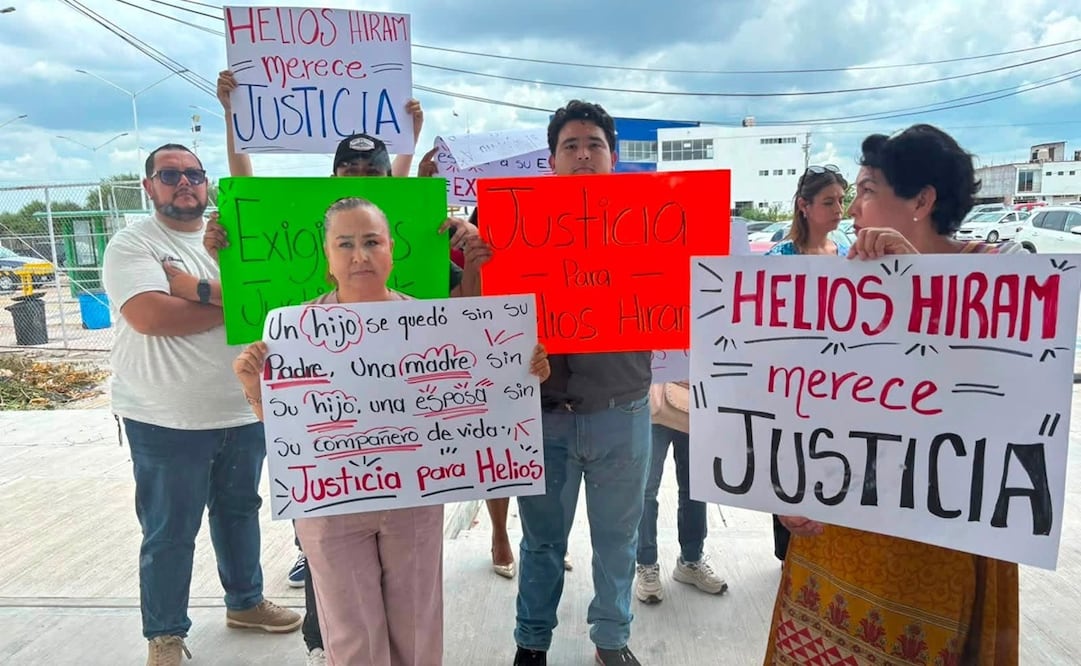 HELIOS HIRAM
merece
JUSTICIA
Exigimos
Justicia
Justicia
Para
Helios Hiram
Un hijo se quedó sin su
Padre, una madre sin
su hijo, una esposa sin
su compañero de vida.,
Justicia para Helios
HELIOS HIRAM
merece
JUSTICIA